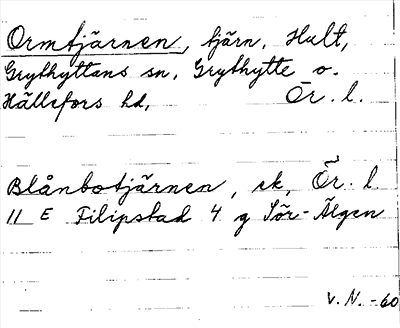 Ormtjärnen, tjärn, Hult,
Grythyttans sn, Grythytte o.
Hällefors hd, Ör. l.
Blånbotjärnen, ek, Ör. l
11 E Filipstad 4 g Sör-Älgen
V. N. -60